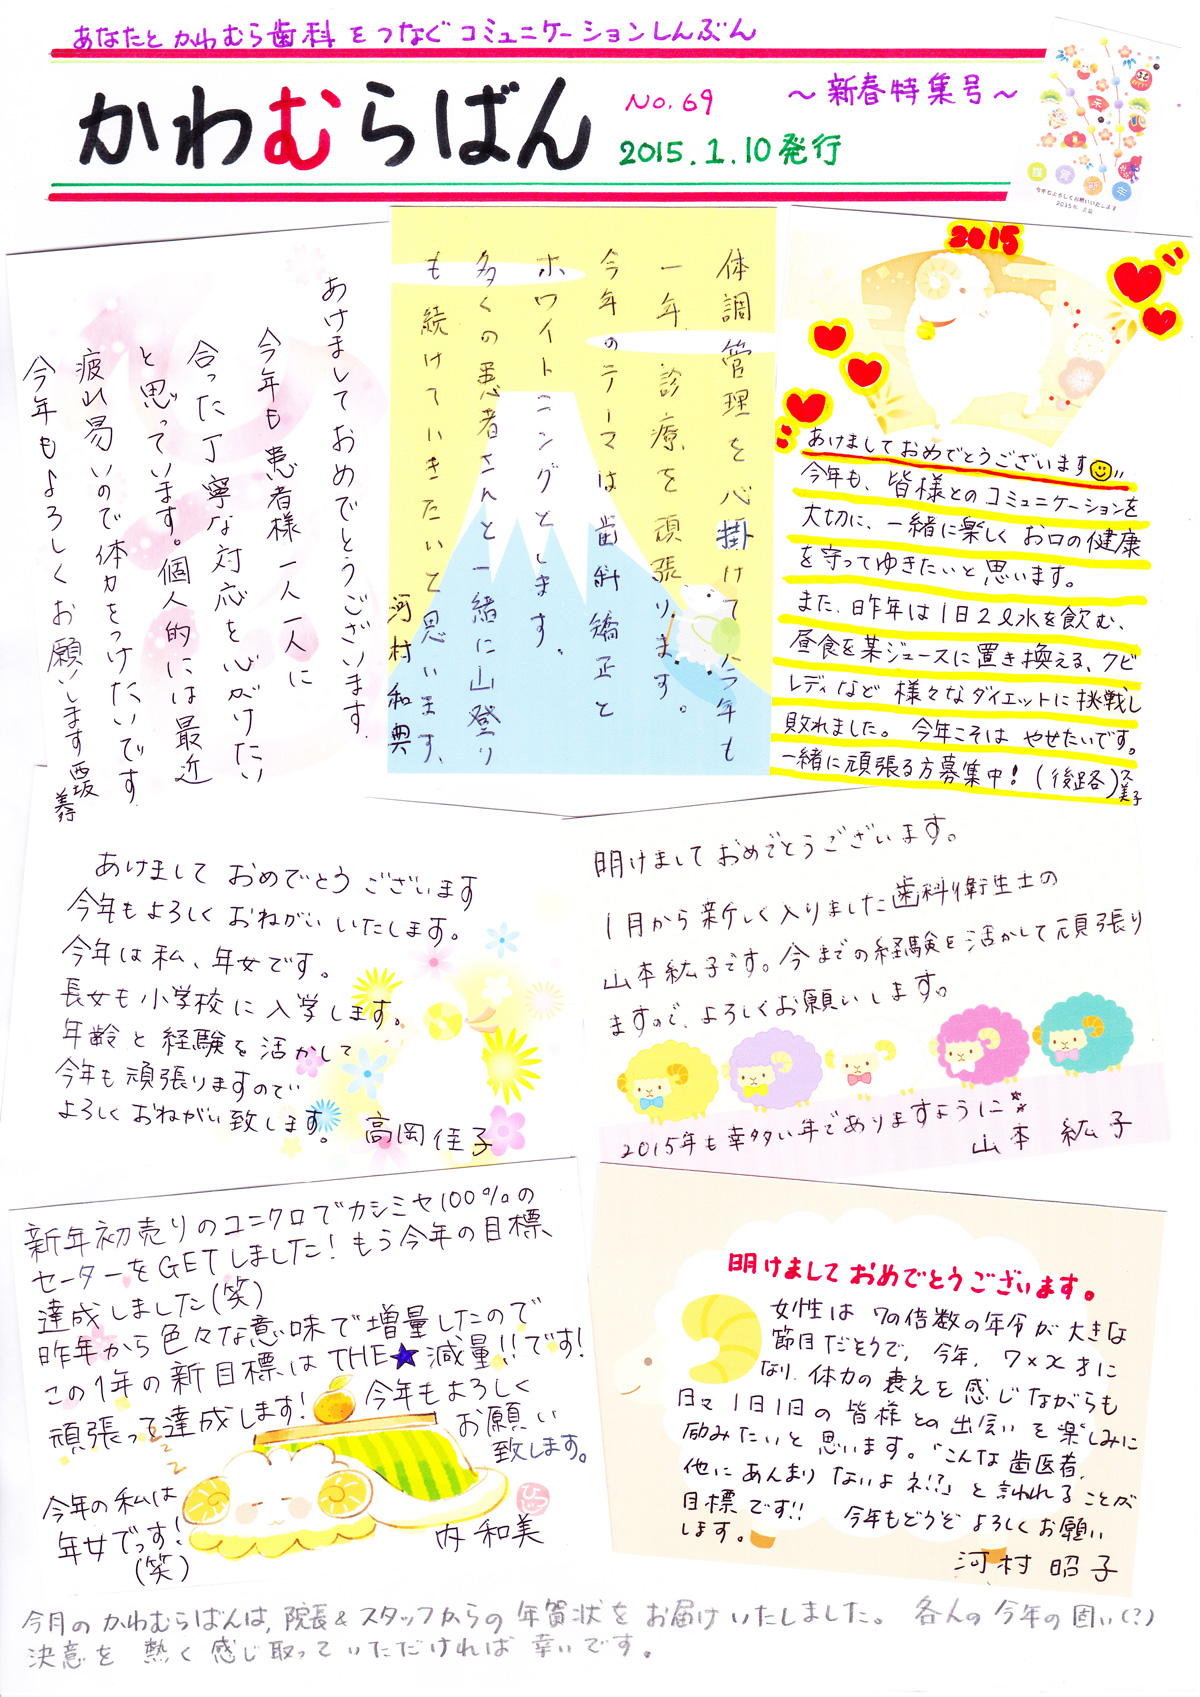 あなたとかわむら歯科をつなぐコミュニケーションしんぶん
かわむらばん
No.69
2015.1.10発行
～新春特集号～
謹賀新年
今年もよろしくお願いいたします
2015年 元旦
2015
あけましておめでとうございます
今年も、皆様とのコミュニケーションを
大切に、一緒に楽しくお口の健康
を守ってゆきたいと思います。
また、昨年は1日2ℓ水を飲む、
昼食を某ジュースに置き換える、クビ
レディなど様々なダイエットに挑戦し
敗れました。今年こそはやせたいです。
一緒に頑張る方募集中！(後路)久美子
体調管理を心掛けて今年も
一年、診療を頑張ります。
今年のテーマは歯科矯正と
ホワイトニングとします。
多くの患者さんと一緒に山登り
も続けていきたいと思います、
河村和興
あけましておめでとうございます.
今年も患者様一人一人に
合った丁寧な対応を心がけたい
と思っています。個人的には最近
疲れ易いので体力をつけたいです
今年もよろしくお願いします
あけましておめでとうございます
今年もよろしくおねがいいたします。
今年は私、年女です。
長女も小学校に入学します。
年齢と経験を活かして
今年も頑張りますので
よろしくおねがい致します。
高岡佳子
明けましておめでとうございます。
1月から新しく入りました歯科衛生士の
山本紘子です。今までの経験を活かして頑張り
ますので、よろしくお願いします。
2015年も幸多い年でありますように
山本 紘子
新年初売りのユニクロでカシミヤ100%の
セーターをGETしました！もう今年の目標、
達成しました(笑)
昨年から色々な意味で増量したので
この1年の新目標はTHE★減量!!です!
頑張って達成します！
今年もよろしく
お願い
致します。
zzz
今年の私は
年女でっす！
(笑)
ひつじ
内 和美
明けましておめでとうございます。
女性は7の倍数の年令が大きな
節目だとうで、今年、7×x才に
なり、体力の衰えを感じながらも
日々1日1日の皆様との出会いを楽しみに
励みたいと思います。「こんな歯医者、
他にあんまりないよネ!?」と言われることが
目標です!! 今年もどうぞよろしくお願い
します。
河村 昭子
今月のかわむらばんは、院長&スタッフからの年賀状をお届けいたしました。各人の今年の固い(?)
決意を熱く感じ取っていただければ幸いです。